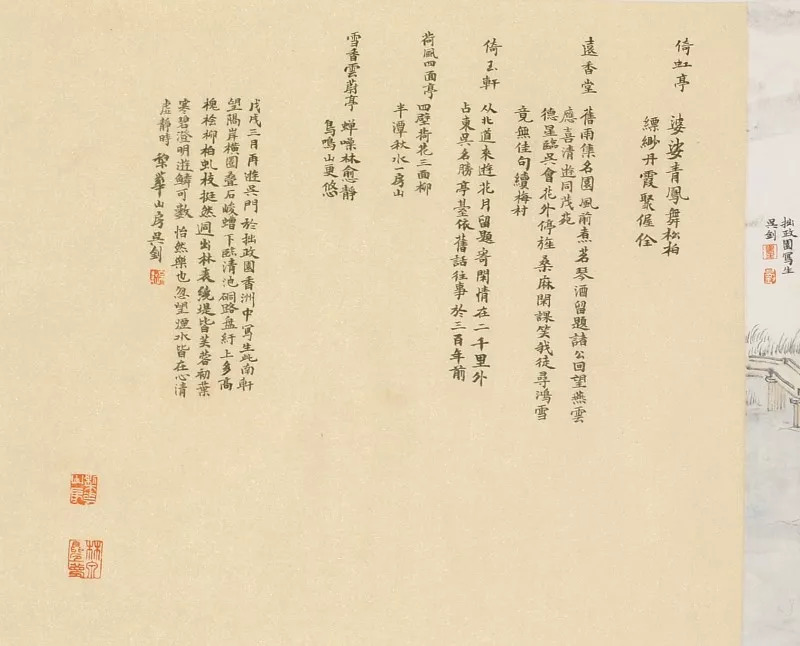 拙政園寫生
吳劍
倚虹亭
婆娑青鳳舞松柏
縹緲丹霞聚偓佺
遠香堂
舊雨集名園風前煮茗琴酒留題諸公回望燕雲
應喜清遊同茂苑
德星臨吳會花外停旌桑麻閑課笑我徒尋鴻雪
竟無佳句續梅村
倚玉軒
从北道來遊花月留題寄閑情在二千里外
占東吳名勝亭臺依舊話往事於三百年前
荷風四面亭
四壁荷花三面柳
半潭秋水一房山
雪香雲蔚亭
蟬噪林愈靜
鳥鳴山更悠
戊戌三月再遊吳門於拙政園香洲中寫生此南軒
望隔岸橫園疊石峻嶒下臨清池硐路盤紆上多高
槐桧柳柏虬枝挺然迥出林表繞堤皆芙蓉初葉
寒碧澄明遊鱗可數怡然樂也忽望煙水皆在心清
虛靜時梨華山房吳劍